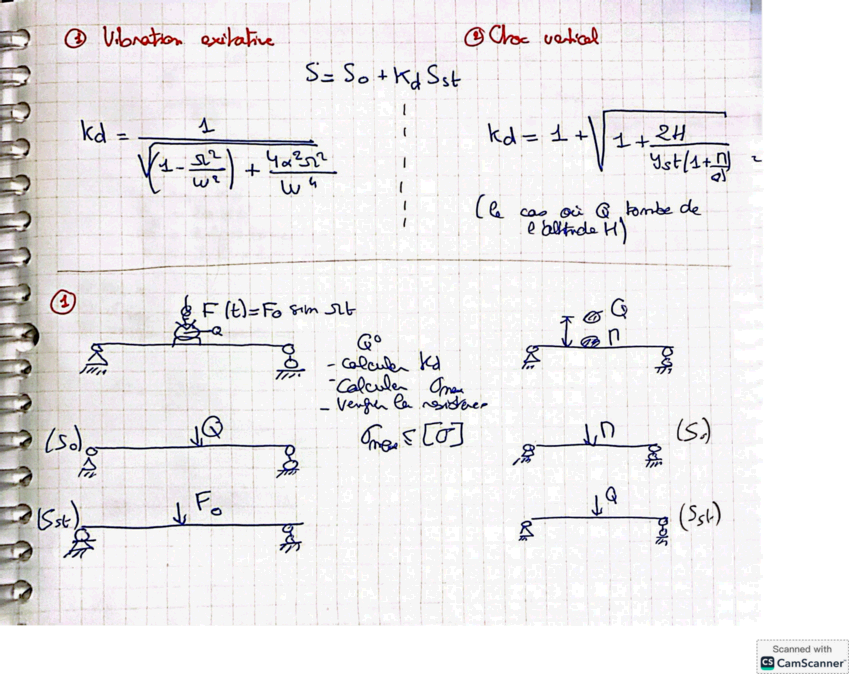 ① Vibration exitative
② Choc vertical
S = S₀ + Kd Sst
Kd = 1 / √((1 - Ω²/ω²) + 4α²Ω²/ω⁴)
Kd = 1 + √(1 + 2H / yst(1 + П/Q))
(le cas où Q tombe de
l'altitude H)
①
F(t) = F₀ sin Ωt
Q
Q°
- calculer Kd
- Calculer σmax
- verifier la resistance
σmax ≤ [σ]
Q
П
(S₀)
Q
П
(S₀)
(Sst)
F₀
Q
(Sst)
Scanned with
CS CamScanner